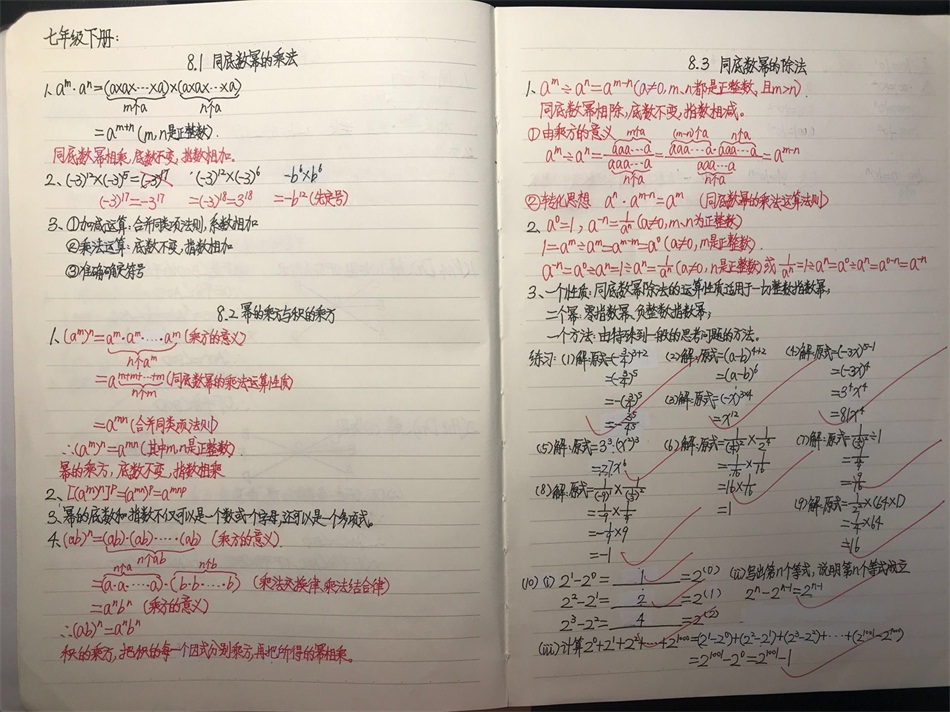 七年级下册:
8.1 同底数幂的乘法
1、aᵐ·aⁿ=(a×a×···×a)×(a×a×···×a)
m个a n个a
=aᵐ⁺ⁿ(m,n是正整数).
同底数幂相乘,底数不变,指数相加。
2、(-3)¹²×(-3)⁵=(-3)¹⁷ (-3)¹²×(-3)⁶ -b⁶×b⁶
(-3)¹⁷=-3¹⁷ =(-3)¹⁸=3¹⁸ =-b¹²(先定号)
3、①加减运算:合并同类项法则,系数相加
②乘法运算:底数不变,指数相加
③准确确定符号
8.2 幂的乘方与积的乘方
1、(aᵐ)ⁿ=aᵐ·aᵐ·····aᵐ(乘方的意义)
n个aᵐ
=a^(m+m+···+m)(同底数幂的乘法运算性质)
n个m
=aᵐⁿ(合并同类项法则)
∴(aᵐ)ⁿ=aᵐⁿ(其中m,n是正整数)
幂的乘方,底数不变,指数相乘
2、[(aᵐ)ⁿ]ᵖ=(aᵐⁿ)ᵖ=aᵐⁿᵖ
3、幂的底数和指数不仅可以是一个数或一个字母,还可以是一个多项式。
4、(ab)ⁿ=(ab)·(ab)·····(ab) (乘方的意义)
n个ab
n个a n个b
=(a·a·····a)·(b·b·····b) (乘法交换律、乘法结合律)
=aⁿbⁿ (乘方的意义)
∴(ab)ⁿ=aⁿbⁿ
积的乘方,把积的每一个因式分别乘方,再把所得的幂相乘。
8.3 同底数幂的除法
1、aᵐ÷aⁿ=aᵐ⁻ⁿ(a≠0,m、n都是正整数,且m>n).
同底数幂相除,底数不变,指数相减。
①由乘方的意义
m个a (m-n)个a n个a
aᵐ÷aⁿ=aaa···a/aaa···a=aaa···a·aaa···a/aaa···a=aᵐ⁻ⁿ
n个a n个a
②转化思想 aⁿ·aᵐ⁻ⁿ=aᵐ (同底数幂的乘法运算法则)
2、a⁰=1,a⁻ⁿ=1/aⁿ(a≠0,m、n为正整数)
1=aᵐ÷aᵐ=aᵐ⁻ᵐ=a⁰(a≠0,m是正整数).
a⁻ⁿ=a⁰÷aⁿ=1÷aⁿ=1/aⁿ(a≠0,n是正整数)或1/aⁿ=1÷aⁿ=a⁰÷aⁿ=a⁰⁻ⁿ=a⁻ⁿ
3、一个性质:同底数幂除法的运算性质适用于一切整数指数幂;
二个幂:零指数幂、负整数指数幂;
一个方法:由特殊到一般的思考问题的方法。
练习:(1)解:原式=(-3/4)³⁺² (2)解:原式=(a-b)⁴⁺² (4)解:原式=(-3x)⁵⁻¹
=(-3/4)⁵ =(a-b)⁶ =(-3x)⁴
=-(3/4)⁵ (3)解:原式=(-x)³ˣ⁴ =3⁴x⁴
=-3⁵/4⁵ =x¹² =81x⁴
(5)解:原式=3³·(x²)³ (6)解:原式=1/(1/4)²×1/2⁴ (7)解:原式=1/(4/3)²÷1
=27x⁶ =1/(1/16)×1/16
(8)解:原式=1/(-9)×1/(1/3)² =16×1/16 =9/16
=-1/9×1/(1/9) =1 (9)解:原式=1/2²×(64×1)
=-1/9×9 =1/4×64
=-1 =16
(10)(i) 2¹-2⁰= 1 =2^(0) (ii)写出第n个等式,说明第n个等式成立
2²-2¹= 2 =2^(1) 2ⁿ-2ⁿ⁻¹=2ⁿ⁻¹
2³-2²= 4 =2^(2)
(iii)计算2⁰+2¹+2²+···+2¹⁰⁰⁰=(2¹-2⁰)+(2²-2¹)+(2³-2²)+···+(2¹⁰⁰¹-2¹⁰⁰⁰)
=2¹⁰⁰¹-2⁰=2¹⁰⁰¹-1